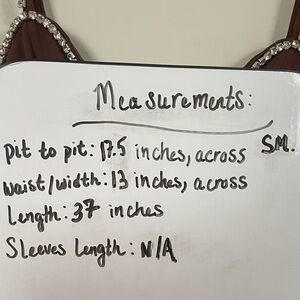 Measurements:
Pit to pit: 17.5 inches, across SM.
Waist/width: 13 inches, across
Length: 37 inches
Sleeves Length: N/A